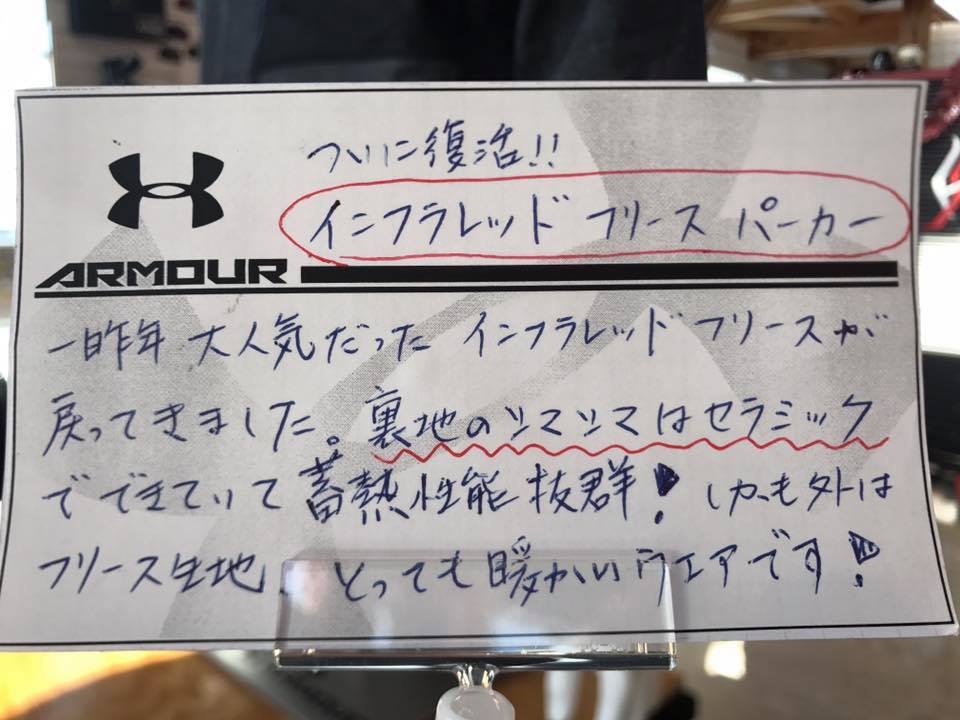 ついに復活!!
インフラレッド フリース パーカー
ARMOUR
一昨年 大人気だった インフラレッド フリースが
戻ってきました。裏地のシマシマはセラミック
でできていて蓄熱性能抜群! しかも外は
フリース生地、とっても暖かいウェアです!